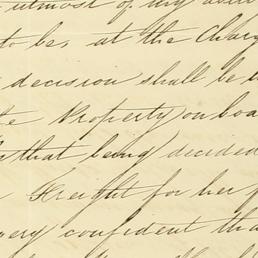 utmost of my
to be, at the Charg
decision shall be
the Property on boa
that being decided
Freight for her p
very confident tha